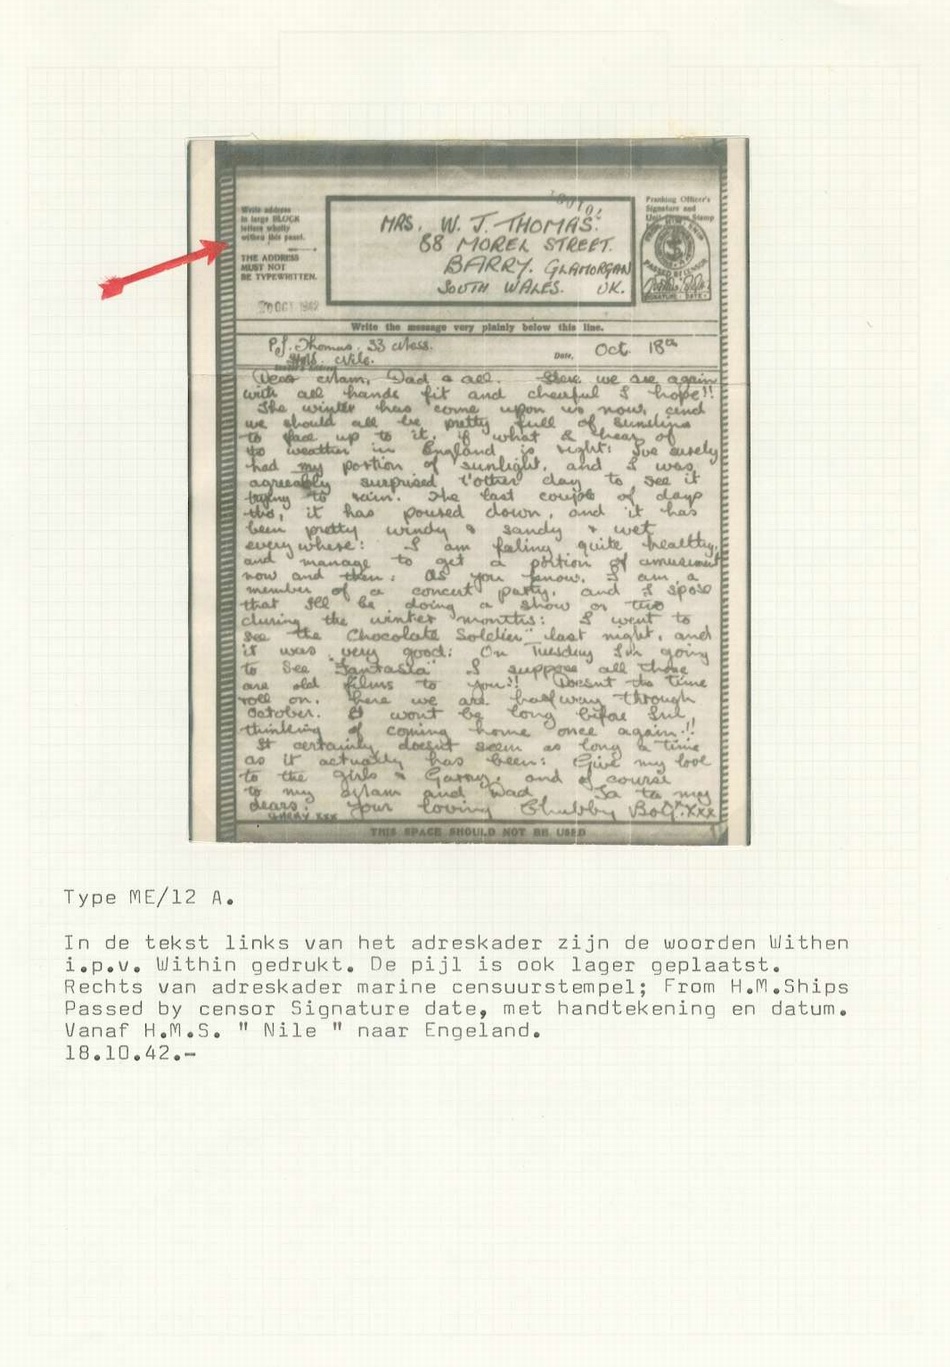 Write address
in large BLOCK
letters wholly
withen this panel.
THE ADDRESS
MUST NOT
BE TYPEWRITTEN.
20 OCT 1942
MRS. W. J. THOMAS.
88 MOREL STREET.
BARRY. GLAMORGAN
SOUTH WALES. UK.
Franking Officer's
Signature and
Unit Stamp
FROM H.M. SHIP
PASSED BY CENSOR
SIGNATURE - DATE -
Write the message very plainly below this line.
P.J. Thomas. 33 Mess.
HMS. Nile.
Date, Oct 18th
Dear Mam, Dad & all. Here we are again
with all hands fit and cheerful I hope!!
The winter has come upon us now, and
we should all be pretty full of
to face up to it, if what I hear of
weather in England is right: I've surely
had my portion of sunlight, and I was
agreeably surprised t'other day to see it
trying to rain. The last couple of days
tho, it has poured down, and it has
been pretty windy & sandy & wet
everywhere: I am feling quite healthy,
and manage to get a portion of amusement
now and then: As you know, I am a
member of a concert party, and I spose
that I'll be doing a show or two
during the winter months: I went to
see the "Chocolate Soldier" last night, and
it was very good: On Tuesday I'm going
to see "Fantasia" I suppose all those
are old films to you!! Doesnt the time
roll on. Here we are halfway through
October. It wont be long before I'm
thinking of coming home once again!!
It certainly doesnt seem as long a time
as it actually has been: Give my love
to the girls & Garry, and of course
to my Mam and Dad. Ta ta my
dears. Your loving Chubby Boy. xxx
GARRY xxx
THIS SPACE SHOULD NOT BE USED
Type ME/12 A.
In de tekst links van het adreskader zijn de woorden Withen
i.p.v. Within gedrukt. De pijl is ook lager geplaatst.
Rechts van adreskader marine censuurstempel; From H.M.Ships
Passed by censor Signature date, met handtekening en datum.
Vanaf H.M.S. " Nile " naar Engeland.
18.10.42.-